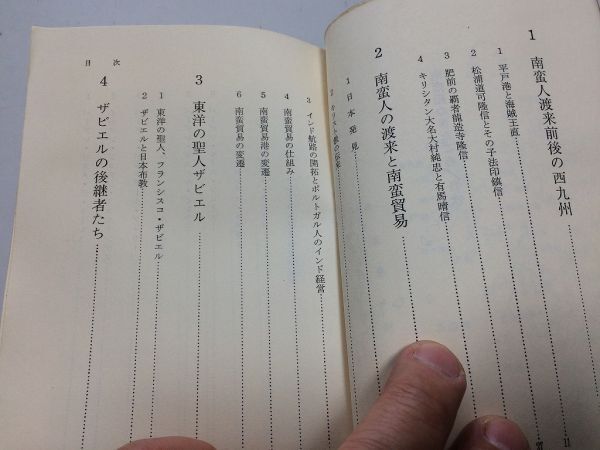 1 南蛮人渡来前後の西九州
1 平戸港と海賊王直
2 松浦道可隆信とその子法印鎮信
3 肥前の覇者龍造寺隆信
4 キリシタン大名大村純忠と有馬晴信
2 南蛮人の渡来と南蛮貿易
1 日本発見
2 キリスト教の伝来
3 インド航路の開拓とポルトガル人のインド経営
4 南蛮貿易の仕組み
5 南蛮貿易港の変遷
6 南蛮貿易の変遷
3 東洋の聖人ザビエル
1 東洋の聖人、フランシスコ・ザビエル
2 ザビエルと日本布教
4 ザビエルの後継者たち
目次
11